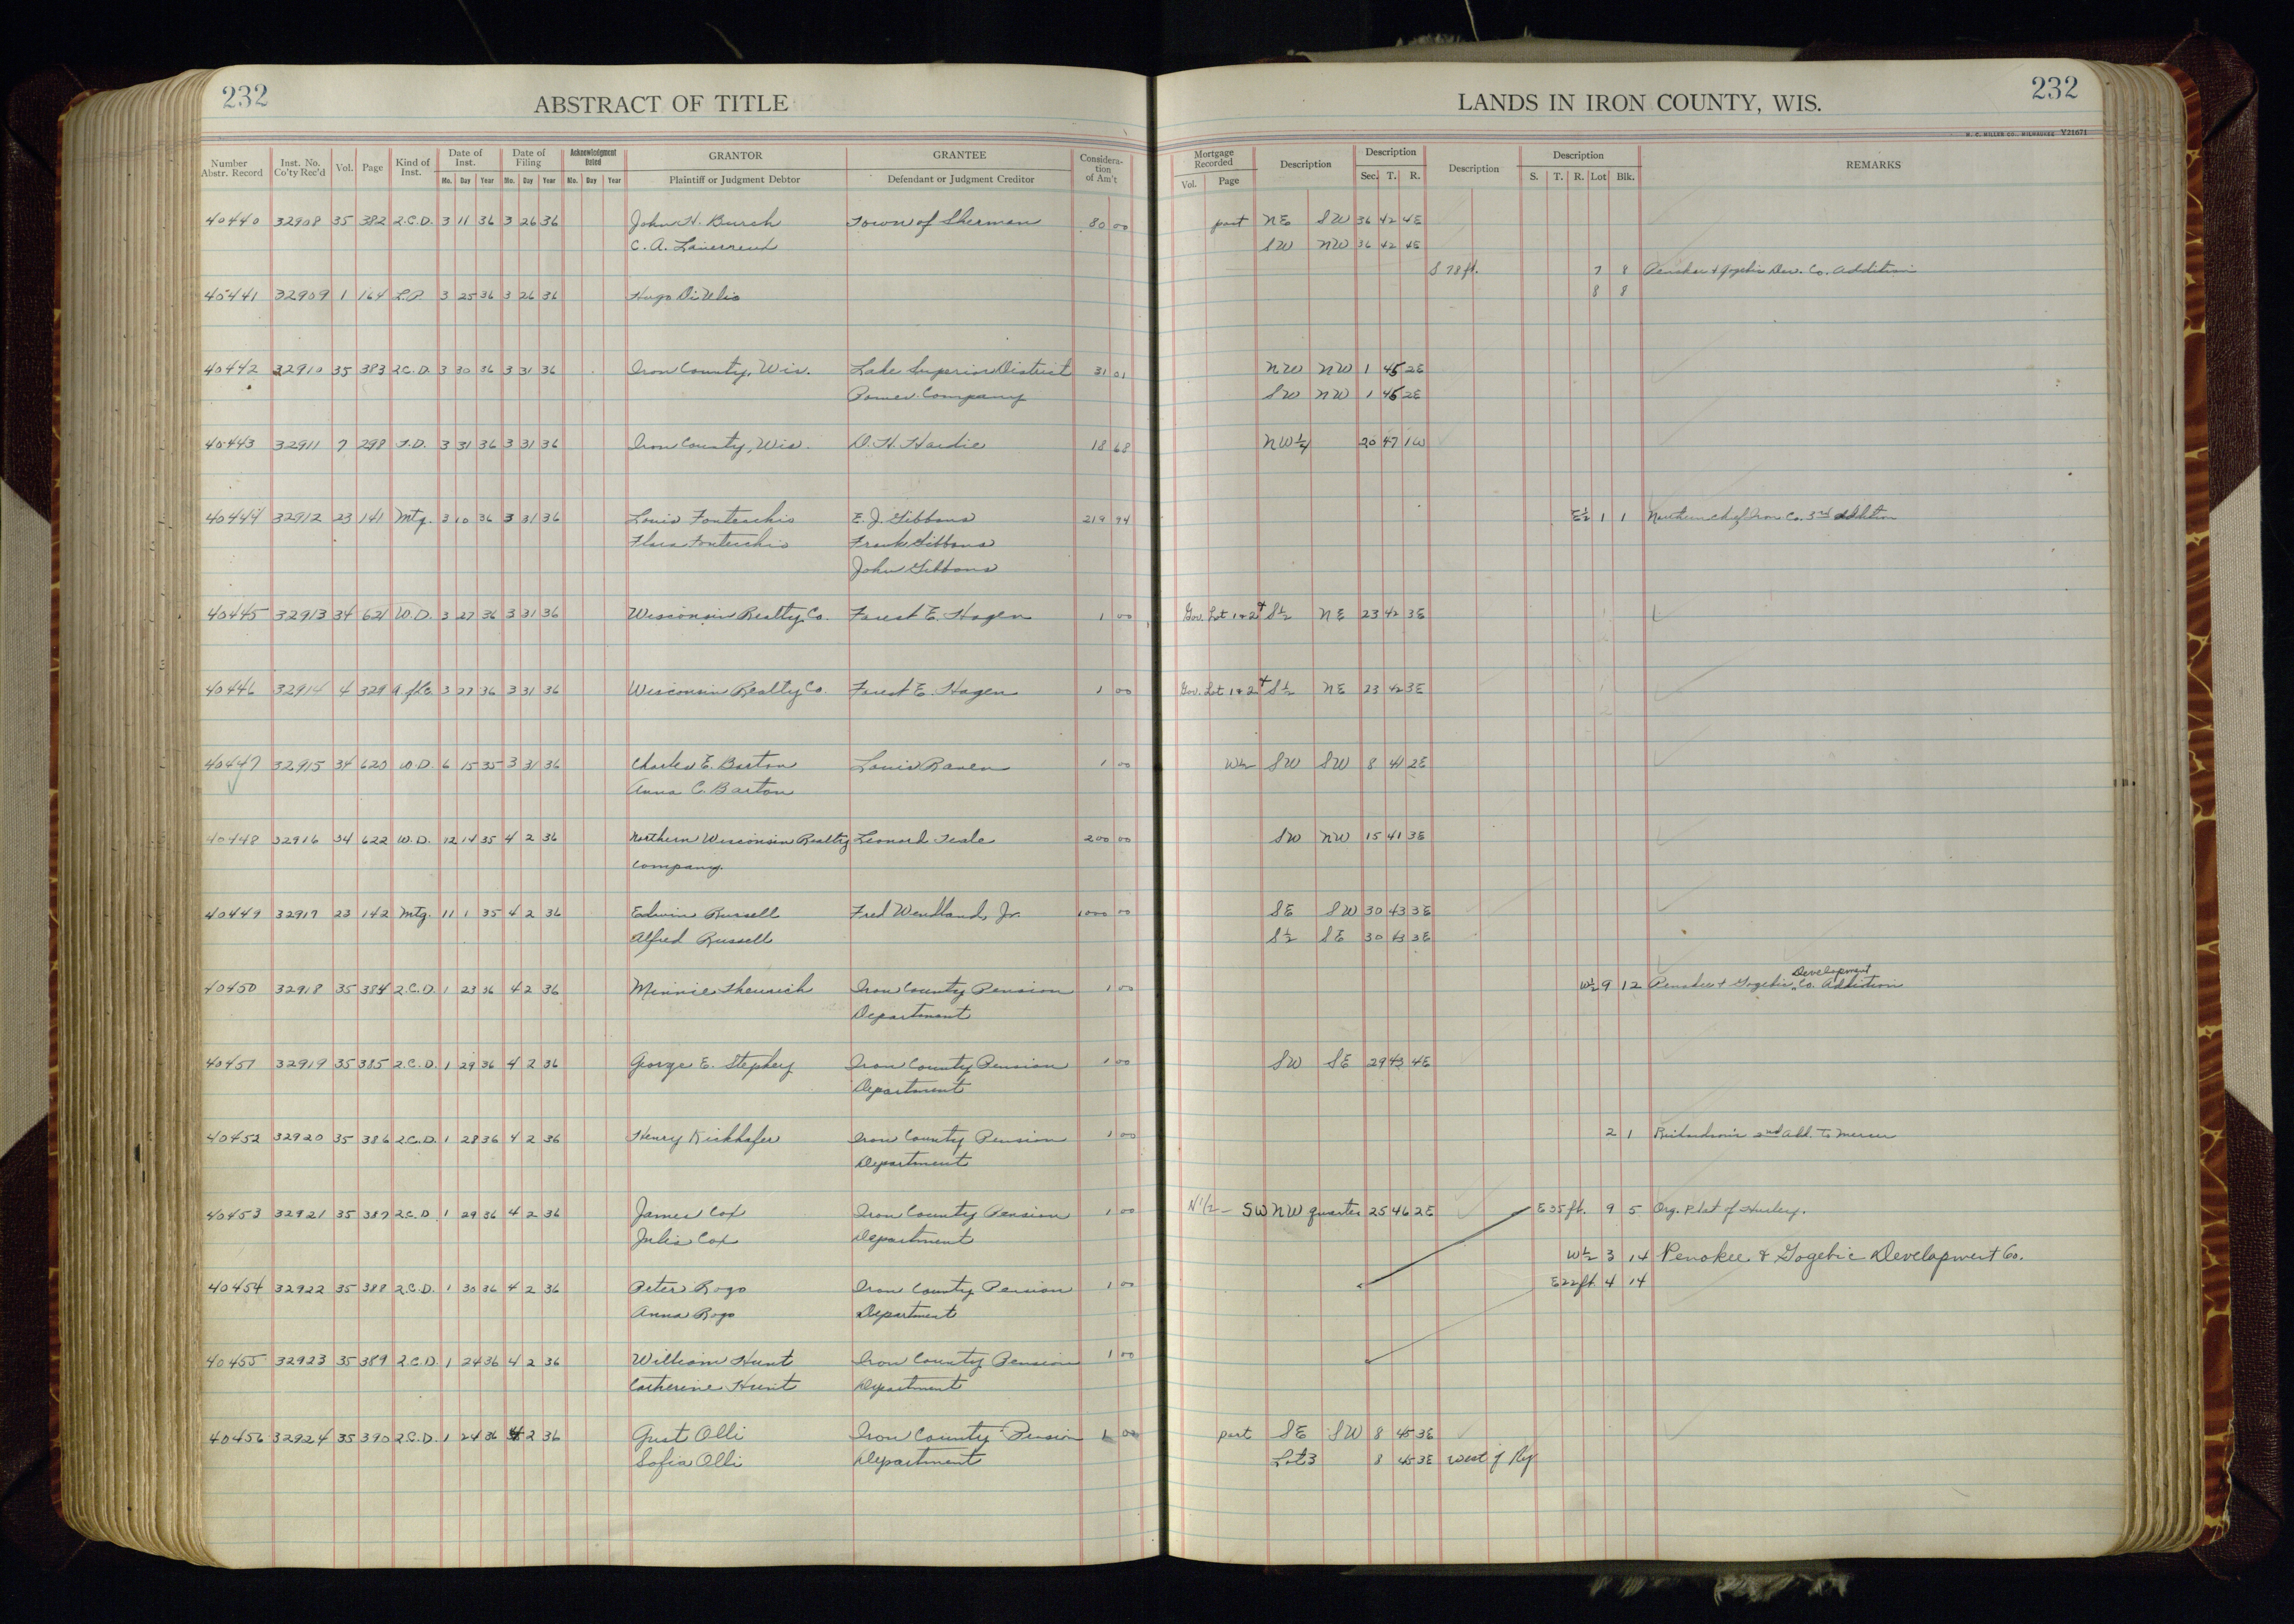 232
ABSTRACT OF TITLE
LANDS IN IRON COUNTY, WIS.
232
H. C. MILLER CO., MILWAUKEE Y21671
Number Abstr. Record Inst. No. Co'ty Rec'd Vol. Page Kind of Inst. Date of Inst. Mo. Day Year Date of Filing Mo. Day Year Acknowledgment Dated Mo. Day Year GRANTOR Plaintiff or Judgment Debtor GRANTEE Defendant or Judgment Creditor Consideration of Am't
Mortgage Recorded Vol. Page Description Description Sec. T. R. Description Description S. T. R. Lot Blk. REMARKS
40440 32908 35 382 2.C.D. 3 11 36 3 26 36 John H. Burch Town of Sherman 80 00 part NE SW 36 42 4E
C. A. SW NW 36 42 4E
S 78 ft. 7 8 Penokee & Gogebic Dev. Co. Addition
40441 32909 1 164 L.P. 3 25 36 3 26 36 Hugo DiUlio 8 8
40442 32910 35 383 2C.D. 3 30 36 3 31 36 Iron County, Wis. Lake Superior District 31 01 NW NW 1 45 2E
Power Company SW NW 1 45 2E
40443 32911 7 298 T.D. 3 31 36 3 31 36 Iron County, Wis. D. H. Hardie 18 68 NW 1/4 20 47 1W
40444 32912 23 141 Mtg. 3 10 36 3 31 36 Louis Fontecchio E. J. Gibbons 219 94 E½ 1 1 Northern Chief Iron Co. 3rd Addition
Flora Fontecchio Frank Gibbons
John Gibbons
40445 32913 34 621 W.D. 3 27 36 3 31 36 Wisconsin Realty Co. Forest E. Hagen 1 00 Gov. Lot 1 & 2 + S½ NE 23 42 3E
40446 32914 4 329 3 27 36 3 31 36 Wisconsin Realty Co. Forest E. Hagen 1 00 Gov. Lot 1 & 2 + S½ NE 23 42 3E
40447 32915 34 620 W.D. 6 15 35 3 31 36 Charles E. Barton Louis Raven 1 00 W½ SW SW 8 41 2E
Anna C. Barton
40448 32916 34 622 W.D. 12 14 35 4 2 36 Northern Wisconsin Realty Leonard Teale 200 00 SW NW 15 41 3E
Company.
40449 32917 23 142 Mtg. 11 1 35 4 2 36 Edwin Russell Fred Wendland, Jr. 1000 00 SE SW 30 43 3E
Alfred Russell S½ SE 30 43 3E
40450 32918 35 384 2.C.D. 1 23 36 4 2 36 Minnie Iron County Pension 1 00 W½ 9 12 Penokee & Gogebic Development Co. Addition
Department
40451 32919 35 385 2.C.D. 1 29 36 4 2 36 George E. Stephey Iron County Pension 1 00 SW SE 29 43 4E
Department
40452 32920 35 386 2.C.D. 1 28 36 4 2 36 Henry Kickhafer Iron County Pension 1 00 2 1 Richardson's 2nd Add. To Mercer
Department
40453 32921 35 387 2.C.D. 1 29 36 4 2 36 James Cox Iron County Pension 1 00 N 1/2 - SW NW quarter 25 46 2E E 35 ft. 9 5 Org. Plat of Hurley.
Julia Cox Department
W½ 3 14 Penokee & Gogebic Development Co.
40454 32922 35 388 2.C.D. 1 30 36 4 2 36 Peter Rogo Iron County Pension 1 00 E 22 ft. 4 14
Anna Rogo Department
40455 32923 35 389 2.C.D. 1 24 36 4 2 36 William Hunt Iron County Pension 1 00
Catherine Hunt Department
40456 32924 35 390 2.C.D. 1 24 36 4 2 36 Gust Olli Iron County Pension 1 00 part SE SW 8 45 3E
Sofia Olli Department Lot 3 8 45 3E west of Ry